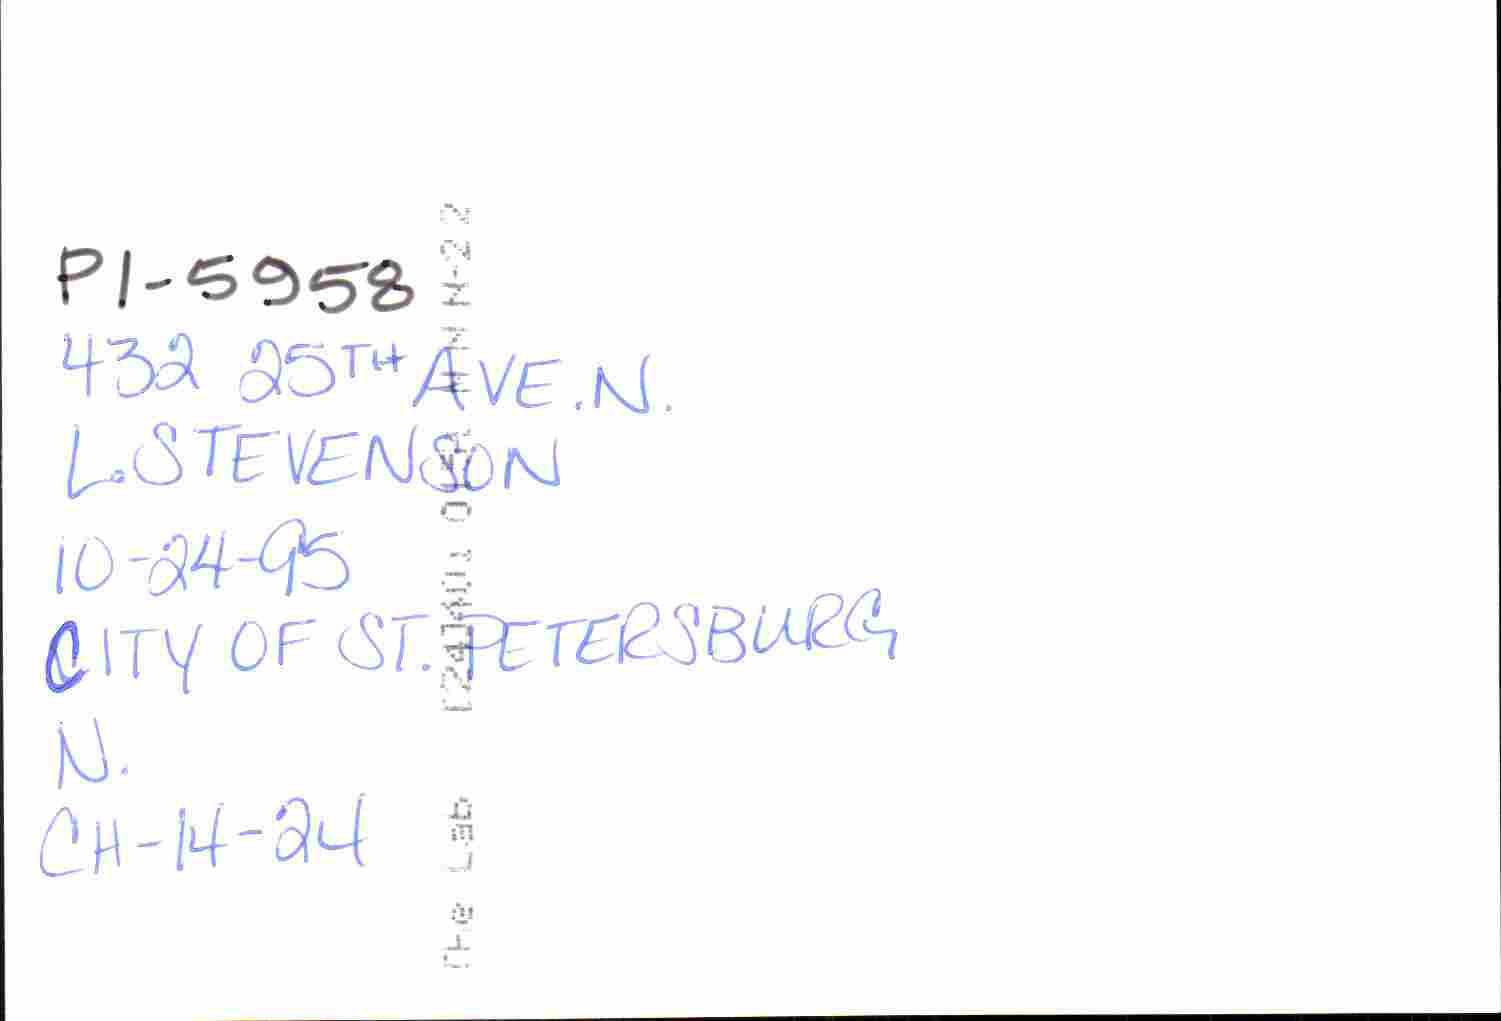 PI-5958
432 25TH AVE. N.
L. STEVENSON
10-24-95
CITY OF ST. PETERSBURG
N.
CH-14-24
The Lab